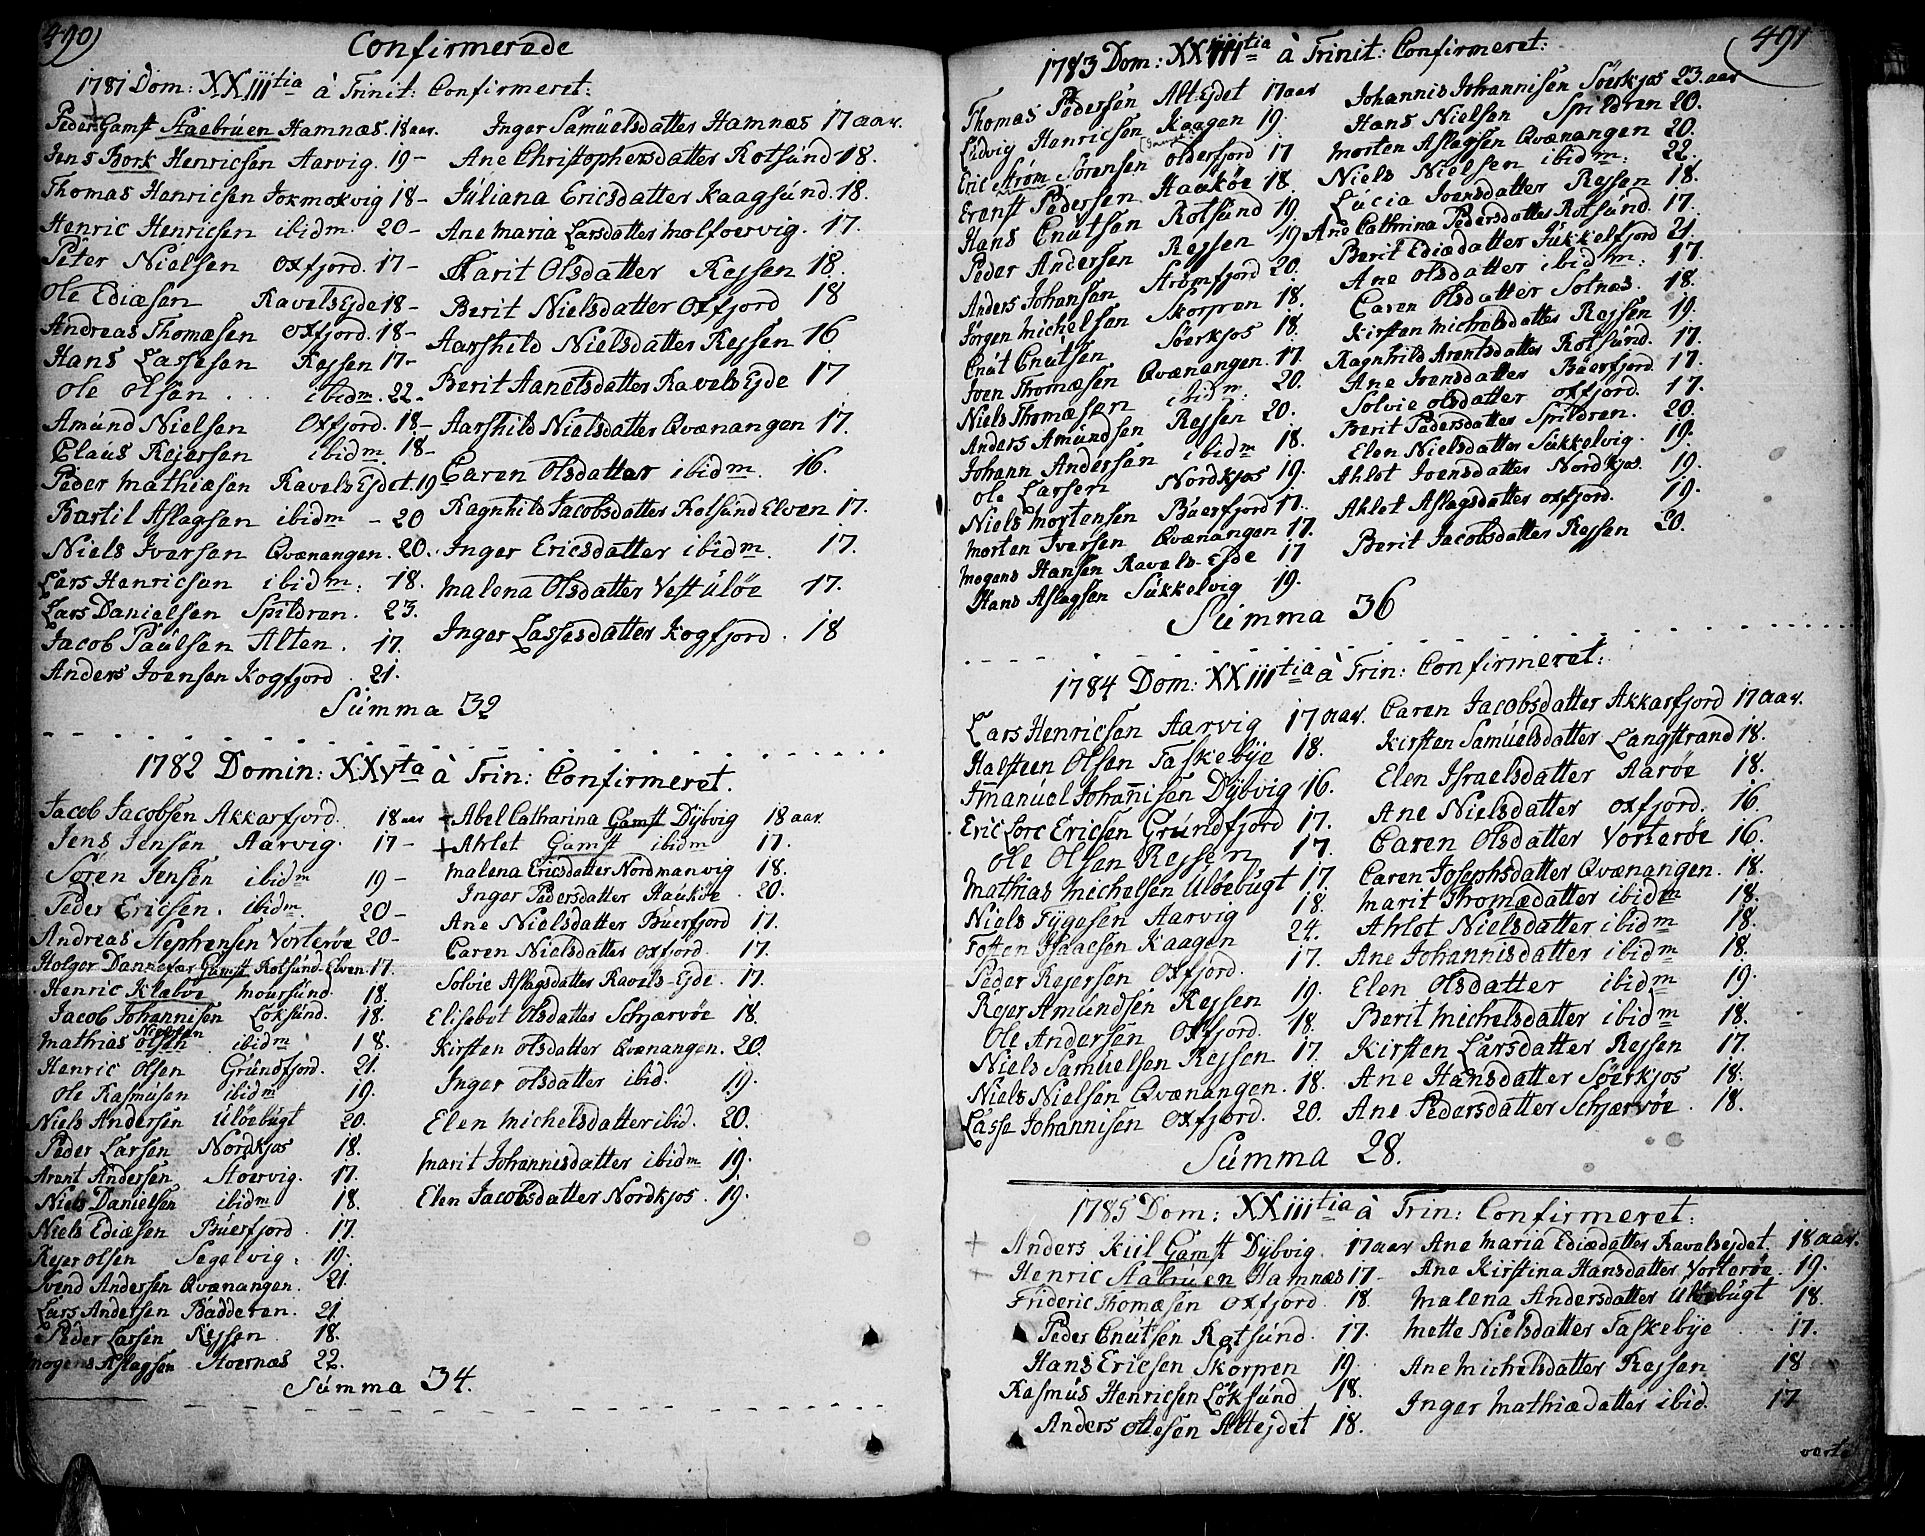 490)
Confirmerede
1781 Dom: XXIII tia à Trinit: Confirmeret:
Peder Gamst Staebruen Hamnæs. 18 aar.
Jens Bork Henricsen Aarvig. 19 -
Thomas Hanricsen Jokmokvig 18 -
Henric Henricsen ibidm. 20 -
Peter Nielsen Oxfjord. 17 -
Ole Ediæsen Ravels Ejde 18 -
Andreas Thomæsen Oxfjord. 18 -
Hans Lassesen Rejsen 17 -
Ole Olsen . . . ibidm. 22 -
Amund Nielsen Oxfjord. 18 -
Claus Rejersen ibidm. 18 -
Peder Mathiæsen Ravels Ejdet. 19
Bartil Aslagsen ibidm - 20
Niels Ivarsen Qvænangen. 20.
Lars Henricsen ibidm: 18.
Lars Danielsen Spildren. 23.
Jacob Paulsen Alten. 17.
Anders Joensen Kogfjord. 21.
Inger Samuelsdatter Hamnæs 17 aar.
Ane Christophersdatter Rotsund 18.
Juliana Ericsdatter Kaagsund. 18.
Ane Maria Larsdatter Molfoervig. 17.
Marit Olsdatter Rejsen 18.
Berit Nielsdatter Oxfjord 18
Aarshild Nielsdatter Rejsen 16
Berit Aanetsdatter Ravels Ejde 17
Aarshild Nielsdatter Qvænangen 17.
Caren Olsdatter ibidm. 16.
Ragnhild Jacobsdatter Rotsund Elven 17.
Inger Ericsdatter ibidm. 17.
Malena Olsdatter Vest Uløe 17.
Inger Lassesdatter Kogfjord. 18
Summa 32
1782 Domin: XXV ta à Trin: Confirmeret.
Jacob Jacobsen Akkarfjord. 18 aar
Jens Jensen Aarvig. 17 -
Søren Jensen ibidm 19 -
Peder Ericsen. ibidm. 20 -
Andreas Stephensen Vorterøe 20 -
Holger Dannefær Gamst Rotsund-Elven 17.
Henric Klæboe Moursund. 18.
Jacob Johannisen Løksund. 18.
Mathias Olsen ibidm 18.
Henric Olsen Grundfjord. 21.
Ole Rasmusen ibidm 19.
Niels Andersen Uløebugt 20.
Peder Larsen Nordkjos 18.
Arent Andersen Stoervig. 17.
Niels Danielsen ibidm 18.
Niels Ediæsen Buerfjord. 17.
Rejer Olsen Segelvig. 19.
Svend Andersen Qvænangen. 21.
Lars Andersen Badderen. 21
Peder Larsen Rejsen. 18.
Mogens Aslagsen Stoernæs 22.
+ Abel Catharina Gamst Dÿbvig 18 aar.
+ Ahlet Gamst ibidm 17.
Malena Ericsdatter Nordmanvig 18.
Inger Pedersdatter Haukøe. 20.
Ane Nielsdatter Buerfjord 17.
Caren Nielsdatter Oxfjord. 17.
Solvie Aslagsdatter Ravels-Ejde. 17.
Elisabet Olsdatter Schjærvøe 18.
Kirsten Olsdatter Qvænangen. 20.
Inger Olsdatter ibid. 19.
Elen Michelsdatter ibid. 20.
Marit Johannisdatter ibidm 19.
Elen Jacobsdatter Nordkjos. 19.
Summa 34.
491
1783 Dom: XXIII tia à Trinit: Confirmeret:
Thomas Pedersen Alt Ejdet 17 aar
Ludvig Hanricsen Kaagen 19.
Eric Strøm Sørensen Olderfjord 17
Ernst Pedersen Haukøe 18.
Hans Cnutsen Rotsund 19.
Peder Andersen Rejsen 19.
Anders Johansen Strømfjord 20.
Jørgen Michelsen Skorpen 18.
Cnut Cnutsen Søerkjos 18.
Joen Thomæsen Qvænangen. 17.
Niels Thomæsen ibidm. 20.
Anders Amundsen Rejsen 20.
Johann Andersen ibidm 18.
Ole Larsen Nordkjos 19.
Niels Mortensen Buerfjord 17.
Morten Iversen Qvænangen 17.
Mogens Hansen Ravels-Ejde 17
Hans Aslagsen Sukkelvig 19.
Johannis Johannisen Søerkjos 23. aar
Hans Nielsen Spildren 20.
Morten Aslagsen Qvænangen 20.
Niels Nielsen ibidm. 22.
Lucia Joensdatter Rejsen 18.
Ane Cathrina Pedersdatter Rotsund. 17.
Berit Ediædatter Jukkelfjord 21.
Ane Olsdatter ibidm: 17.
Caren Olsdatter Sotnæs. 18.
Kirsten Michelsdatter Rejsen 19.
Ragnhild Arentsdatter Rotsund. 17.
Ane Joensdatter Buerfjord 17.
Solvie Olsdatter Oxfjord. 17.
Berit Pedersdatter Spildren. 20.
Elen Nielsdatter Sukkelvig. 19.
Ahlet Joensdatter Nordkjos. 19.
Ahlet Aslagsdatter Oxfjord. 19.
Berit Jacobsdatter Rejsen 20.
Summa 36
1784 Dom: XXIII tia à Trin: Confirmeret:
Lars Henricsen Aarvig 17 aar.
Halsteen Olsen Taskebÿe 18.
Imanuel Johannisen Dÿbvig 16.
Eric Lorc Ericsen Grundfjord 17.
Ole Olsen Rejsen 17.
Mathias Michelsen Uløebugt 17.
Niels Tÿgesen Aarvig 18.
Tosten Isaacsen Kaagen 24.
Peder Rejersen Oxfjord. 17.
Rejer Amundsen Rejsen 19.
Ole Andersen Oxfjord. 18.
Niels Samuelsen Rejsen 17.
Niels Nielsen Qvænangen. 18.
Lasse Johannisen Oxfjord. 20.
Caren Jacobsdatter Akkarfjord 17 aar.
Kirsten Samuelsdatter Langstrand 18.
Elen Israelsdatter Aarøe 18.
Ane Nielsdatter Oxfjord. 16.
Caren Olsdatter Vorterøe 16.
Caren Josephsdatter Qvænangen. 18.
Marit Thomædatter ibidm 18.
Ahlet Nielsdatter ibidm 18.
Ane Johannisdatter ibidm 18.
Elen Olsdatter ibidm 19.
Berit Michelsdatter ibidm 18.
Kirsten Larsdatter Rejsen 17.
Ane Hansdatter Søerkjos 18.
Ane Pedersdatter Schjærvøe. 18.
Summa 28.
1785 Dom: XXIII tia à Trin: Confirmeret:
+ Anders Kiil Gamst Dÿbvig. 17 aar
+ Henric Stabruen Hamnæs 17 -
Frideric Thomæsen Oxfjord 18.
Peder Cnutsen Rotsund. 17.
Hans Ericsen Skorpen 19.
Rasmus Henricsen Løksund 18.
Anders Ollesen Altejdet 18.
Ane Maria Ediædatter Ravelsejdet. 18 aar.
Ane Kirstina Hansdatter Vorterøe. 19.
Malena Andersdatter Uløebugt 18.
Mette Nielsdatter Taskebÿe 17.
Ane Michelsdatter Rejsen 18
Inger Mathiædatter ibid. 17